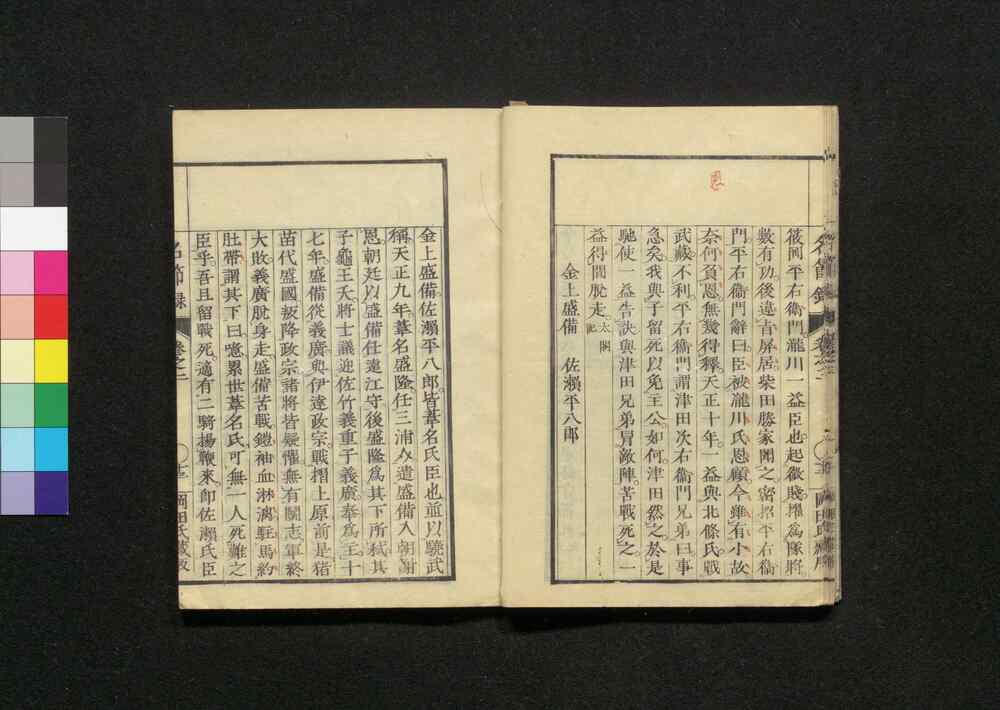 筱岡平右衞門瀧川一益臣也起微賤擢爲隊將
數有功後違旨屏居柴田勝家聞之密招平右衞
門平右衞門辭曰臣被瀧川氏恩顧今雖有小故
奈何負恩無幾得釋天正十年一益與北條氏戰
武藏不利平右衞門謂津田次右衞門兄弟曰事
急矣我與子留死以免主公如何津田然之於是
馳使一益告訣與津田兄弟冐敵陣苦戰死之一
益得間脫走太閤記
金上盛備 佐瀨平八郎
金上盛備佐瀨平八郎皆葦名氏臣也並以驍武
稱天正九年葦名盛隆任三浦介遣盛備入朝謝
恩朝廷以盛備任遠江守後盛隆爲其下所弑其
子龜王夭將士議迎佐竹義重子義廣奉爲主十
七年盛備從義廣與伊達政宗戰摺上原前是猪
苗代盛國叛降政宗諸將皆疑懼無有鬪志軍終
大敗義廣脫身走盛備苦戰鎧袖血淋漓駐馬約
肚帶謂其下曰噫累世葦名氏可無一人死難之
臣乎吾且留戰死適有二騎揚鞭來卽佐瀨氏臣
名節錄 卷之二 十二 岡田氏藏版